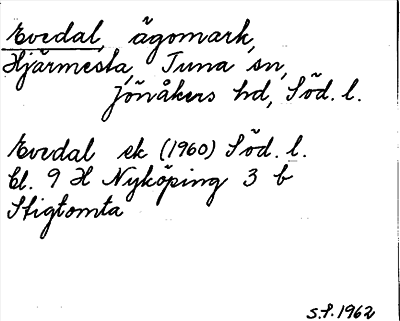 Evedal, ägomark,
Hjärmesta, Tuna sn,
Jönåkers hd, Söd. l.
Evedal ek (1960) Söd. l.
bl. 9 H Nyköping 3 b
Stigtomta
S.F. 1962